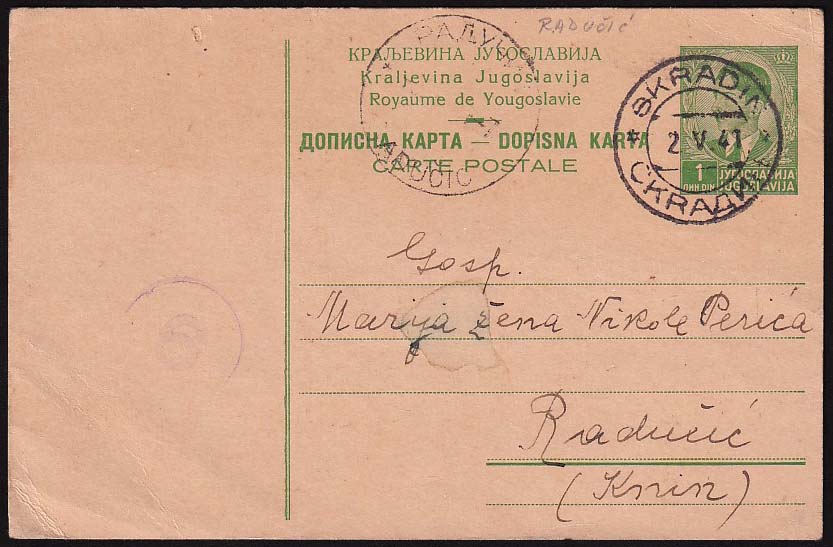 RADUČIĆ
РАДУЧ
КРАЉЕВИНА ЈУГОСЛАВИЈА
Kraljevina Jugoslavija
Royaume de Yougoslavie
ДОПИСНА КАРТА — DOPISNA KARTA
CARTE POSTALE
RADUČIĆ
SKRADIN
2 V 41
СКРАДИН
1
ДИН DIN
ЈУГОСЛАВИЈА
JUGOSLAVIJA
S
Gosp.
Marija žena Nikole Perića
Radučić
(Knin)